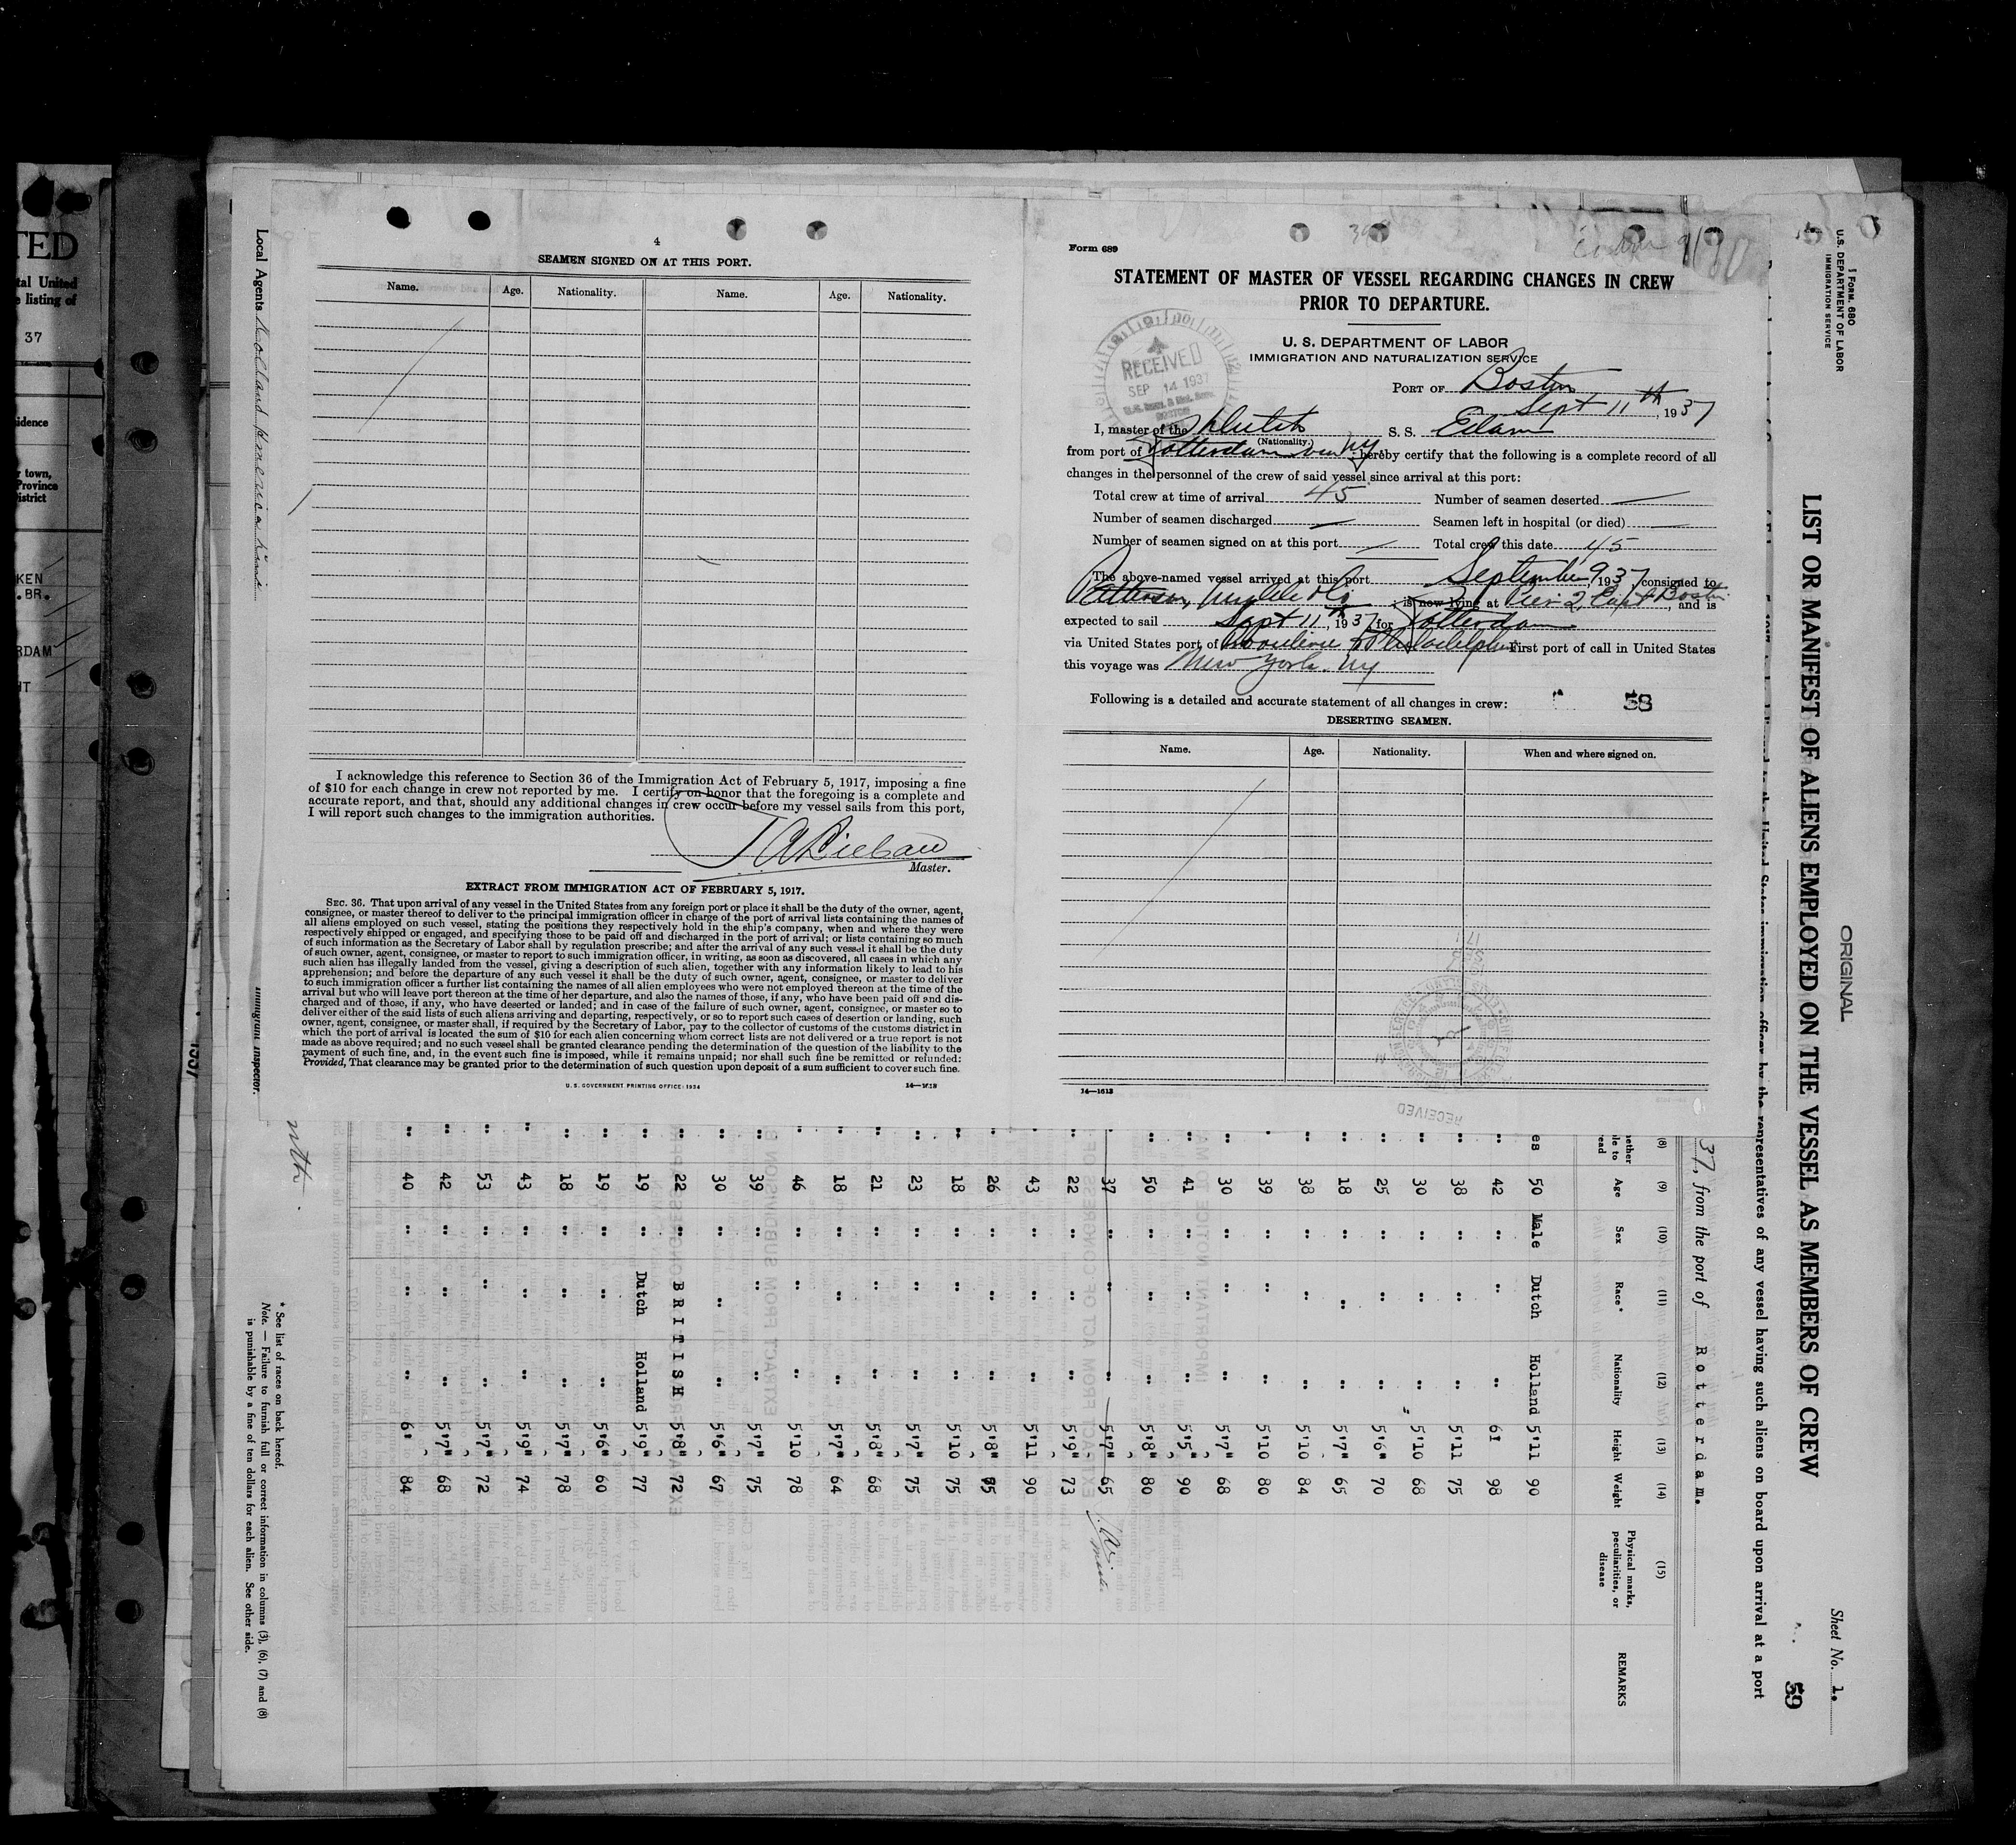 4
SEAMEN SIGNED ON AT THIS PORT.
Name. Age. Nationality. Name. Age. Nationality.
I acknowledge this reference to Section 36 of the Immigration Act of February 5, 1917, imposing a fine
of $10 for each change in crew not reported by me. I certify on honor that the foregoing is a complete and
accurate report, and that, should any additional changes in crew occur before my vessel sails from this port,
I will report such changes to the immigration authorities.
Master.
EXTRACT FROM IMMIGRATION ACT OF FEBRUARY 5, 1917.
SEC. 36. That upon arrival of any vessel in the United States from any foreign port or place it shall be the duty of the owner, agent,
consignee, or master thereof to deliver to the principal immigration officer in charge of the port of arrival lists containing the names of
all aliens employed on such vessel, stating the positions they respectively hold in the ship's company, when and where they were
respectively shipped or engaged, and specifying those to be paid off and discharged in the port of arrival; or lists containing so much
of such information as the Secretary of Labor shall by regulation prescribe; and after the arrival of any such vessel it shall be the duty
of such owner, agent, consignee, or master to report to such immigration officer, in writing, as soon as discovered, all cases in which any
such alien has illegally landed from the vessel, giving a description of such alien, together with any information likely to lead to his
apprehension; and before the departure of any such vessel it shall be the duty of such owner, agent, consignee, or master to deliver
to such immigration officer a further list containing the names of all alien employees who were not employed thereon at the time of the
arrival but who will leave port thereon at the time of her departure, and also the names of those, if any, who have been paid off and dis-
charged and of those, if any, who have deserted or landed; and in case of the failure of such owner, agent, consignee, or master so to
deliver either of the said lists of such aliens arriving and departing, respectively, or so to report such cases of desertion or landing, such
owner, agent, consignee, or master shall, if required by the Secretary of Labor, pay to the collector of customs of the customs district in
which the port of arrival is located the sum of $10 for each alien concerning whom correct lists are not delivered or a true report is not
made as above required; and no such vessel shall be granted clearance pending the determination of the question of the liability to the
payment of such fine, and, in the event such fine is imposed, while it remains unpaid; nor shall such fine be remitted or refunded:
Provided, That clearance may be granted prior to the determination of such question upon deposit of a sum sufficient to cover such fine.
U. S. GOVERNMENT PRINTING OFFICE: 1934
Local Agents Holland America Line
Immigrant Inspector.
Form 689
STATEMENT OF MASTER OF VESSEL REGARDING CHANGES IN CREW
PRIOR TO DEPARTURE.
U. S. DEPARTMENT OF LABOR
IMMIGRATION AND NATURALIZATION SERVICE
RECEIVED
SEP 14 1937
PORT OF Boston
Sept 11th, 1937
I, master of the Dutch S. S. Edam
(Nationality.)
from port of Rotterdam via NY, hereby certify that the following is a complete record of all
changes in the personnel of the crew of said vessel since arrival at this port:
Total crew at time of arrival 45 Number of seamen deserted —
Number of seamen discharged — Seamen left in hospital (or died) —
Number of seamen signed on at this port — Total crew this date 45
The above-named vessel arrived at this port September 9, 1937, consigned to
Patterson, Wylde & Co; is now lying at Pier 2, East Boston, and is
expected to sail Sept 11th, 1937, for Rotterdam
via United States port of Philadelphia First port of call in United States
this voyage was New York NY
Following is a detailed and accurate statement of all changes in crew: 58
DESERTING SEAMEN.
Name. Age. Nationality. When and where signed on.
14—1613
RECEIVED
1 Form. 680
U.S. DEPARTMENT OF LABOR
IMMIGRATION SERVICE
ORIGINAL
Sheet No. 1.
59
LIST OR MANIFEST OF ALIENS EMPLOYED ON THE VESSEL AS MEMBERS OF CREW
representatives of any vessel having such aliens on board upon arrival at a port
37, from the port of Rotterdam.
(8) (9) (10) (11) (12) (13) (14) (15)
Age Sex Race* Nationality Height Weight Physical marks, peculiarities, or disease REMARKS
50 Male Dutch Holland 5'11 90
42 " " " 6' 98
38 " " " 5'11 75
30 " " " 5'10 68
25 " " " 5'6" 70
18 " " " 5'7" 65
38 " " " 5'10 84
39 " " " 5'10 80
30 " " " 5'7" 68
41 " " " 5'5" 90
50 " " " 5'8" 80
37 " " " 5'7" 65
22 " " " 5'9" 73
43 " " " 5'11 90
26 " " " 5'8" 75
18 " " " 5'10 75
23 " " " 5'7" 75
21 " " " 5'8" 68
18 " " " 5'7" 64
46 " " " 5'10 78
39 " " " 5'7" 75
30 " " " 5'6" 67
22 " BRITISH 5'8" 72
19 " Dutch Holland 5'9" 77
19 " " " 5'6" 60
18 " " " 5'7" 78
43 " " " 5'9" 74
53 " " " 5'7" 72
42 " " " 5'7" 68
40 " " " 6' 84
* See list of races on back hereof.
Note. — Failure to furnish full or correct information in columns (3), (6), (7) and (8)
is punishable by a fine of ten dollars for each alien. See other side.
TED
tal United
listing of
37
idence
town,
Province
istrict
KEN
.BR.
RDAM